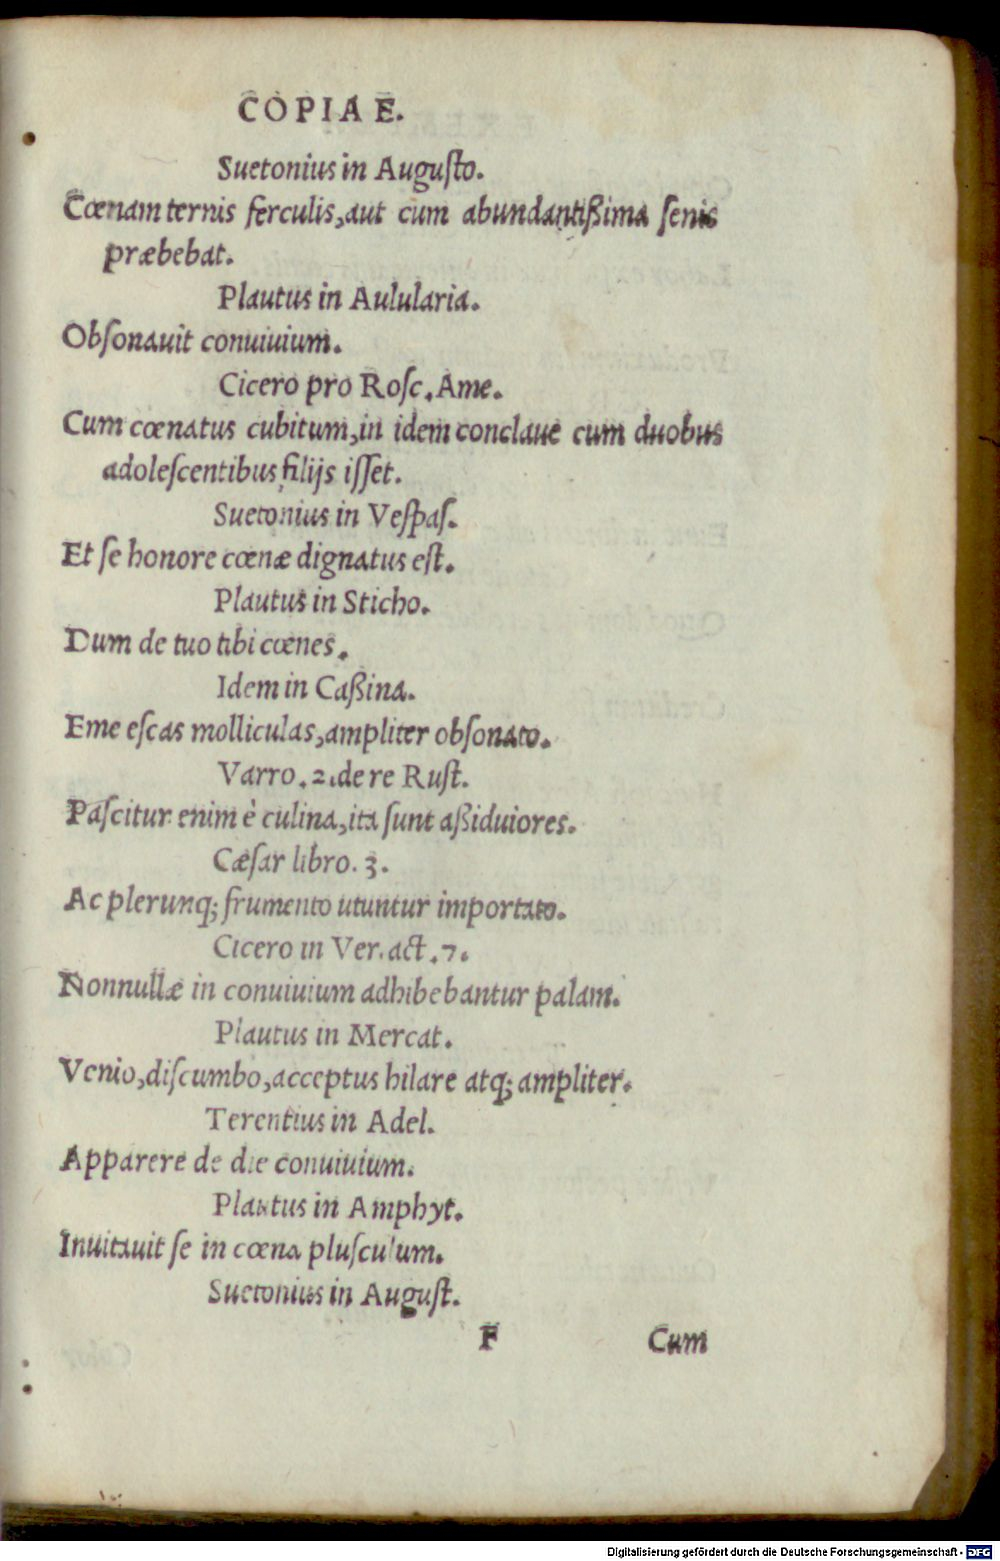 COPIAE.
Suetonius in Auguſto.
Cœnam ternis ferculis, aut cum abundantißima ſenis
præbebat.
Plautus in Aulularia.
Obſonauit conuiuium.
Cicero pro Roſc. Ame.
Cum cœnatus cubitum, in idem conclaue cum duobus
adoleſcentibus filijs iſſet.
Suetonius in Veſpaſ.
Et ſe honore cœnæ dignatus eſt.
Plautus in Sticho.
Dum de tuo tibi cœnes.
Idem in Caßina.
Eme eſcas molliculas, ampliter obſonato.
Varro. 2. de re Ruſt.
Paſcitur enim è culina, ita ſunt aßiduiores.
Cæſar libro. 3.
Ac plerunq; frumento utuntur importato.
Cicero in Ver. act. 7.
Nonnullæ in conuiuium adhibebantur palam.
Plautus in Mercat.
Venio, diſcumbo, acceptus hilare atq; ampliter.
Terentius in Adel.
Apparere de die conuiuium.
Plautus in Amphyt.
Inuitauit ſe in cœna pluſculum.
Suetonius in Auguſt.
F Cum
Digitalisierung gefördert durch die Deutsche Forschungsgemeinschaft - DFG